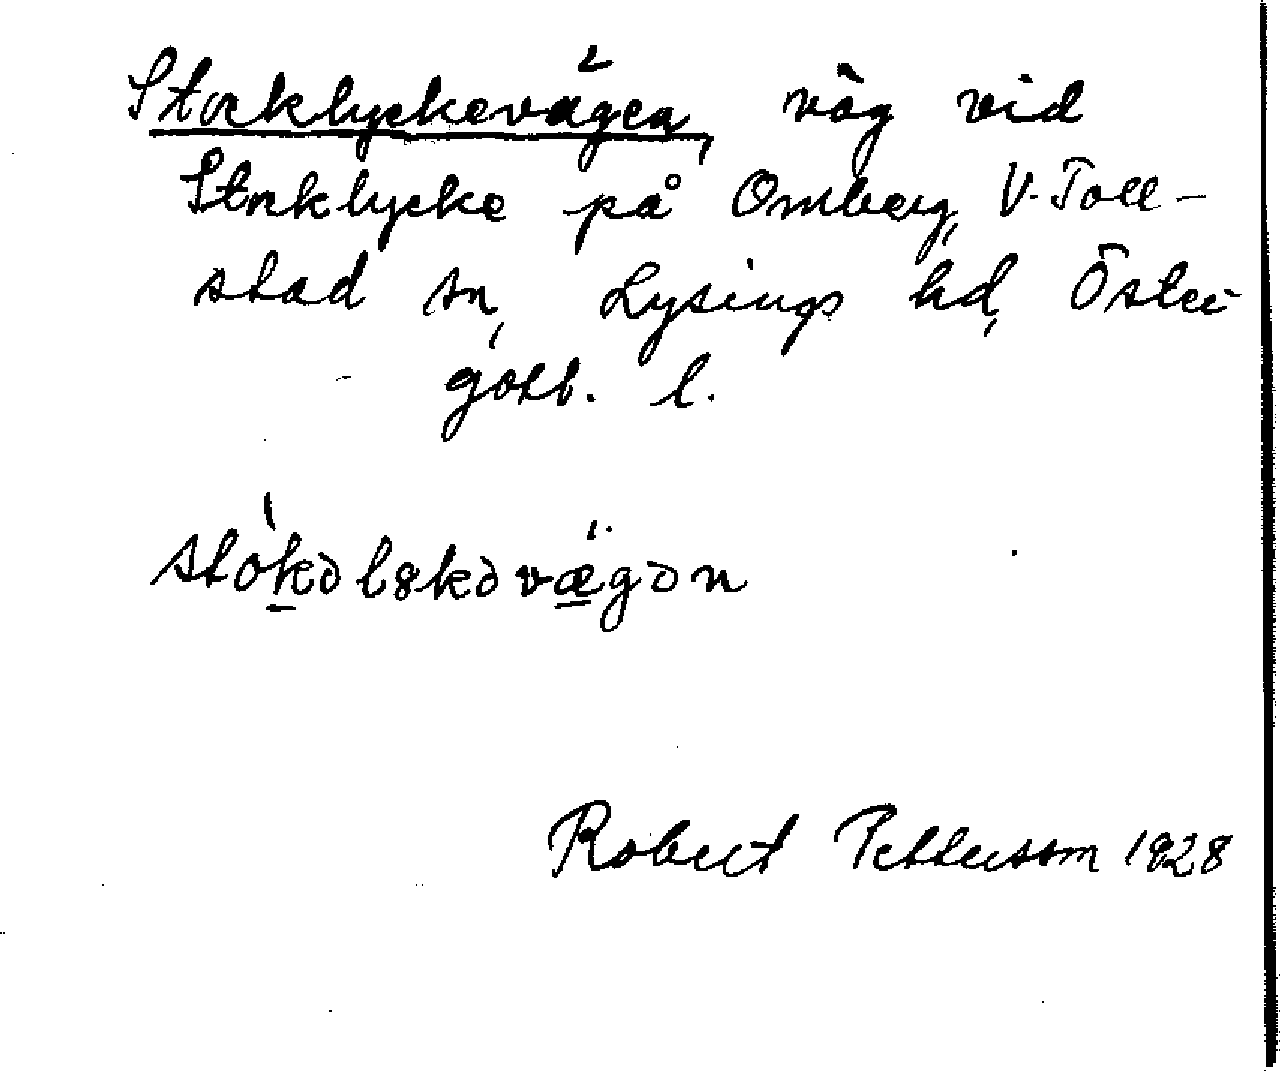 Stocklyckevägen, väg vid
Stocklycke på Omberg, V. Toll-
stad sn, Lysings hd, Öster-
götl. l.
Robert Pettersson 1928